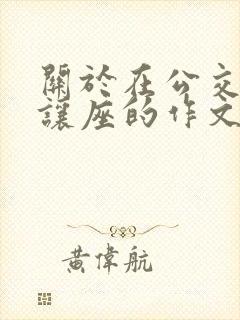 關於在公交
讓座的作文
黃偉航